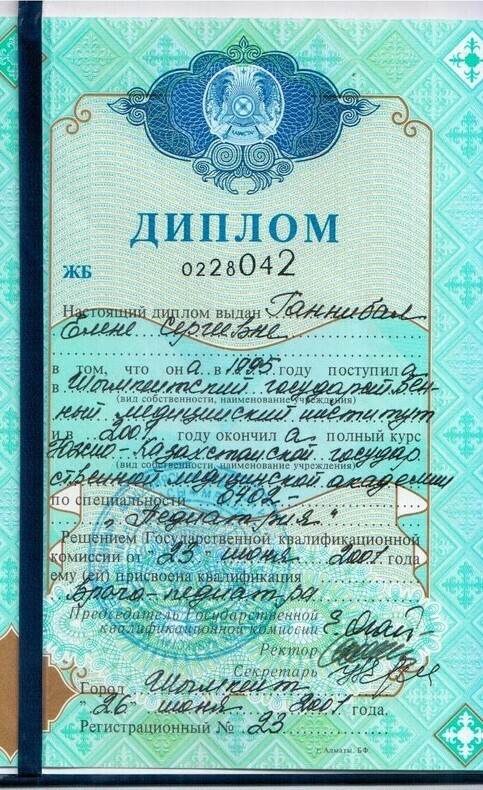 ҚАЗАҚСТАН
ДИПЛОМ
ЖБ 0228042
Настоящий диплом выдан Ганнибал
Елене Сергеевне
в том, что она в 1995 году поступила
в Шымкентский государствен-
(вид собственности, наименование учреждения)
ный медицинский институт
и в 2001 году окончила полный курс
Южно-Казахстанской государ
(вид собственности, наименование учреждения)
ственной медицинской академии
по специальности 0402 -
"Педиатрия"
Решением Государственной квалификационной
комиссии от "23" июня 2001 года
ему (ей) присвоена квалификация
врача-педиатра
Председатель Государственной
квалификационной комиссии
Ректор
Секретарь
Город Шымкент
"26" июня 2001 года.
Регистрационный № 23
г. Алматы. БФ.